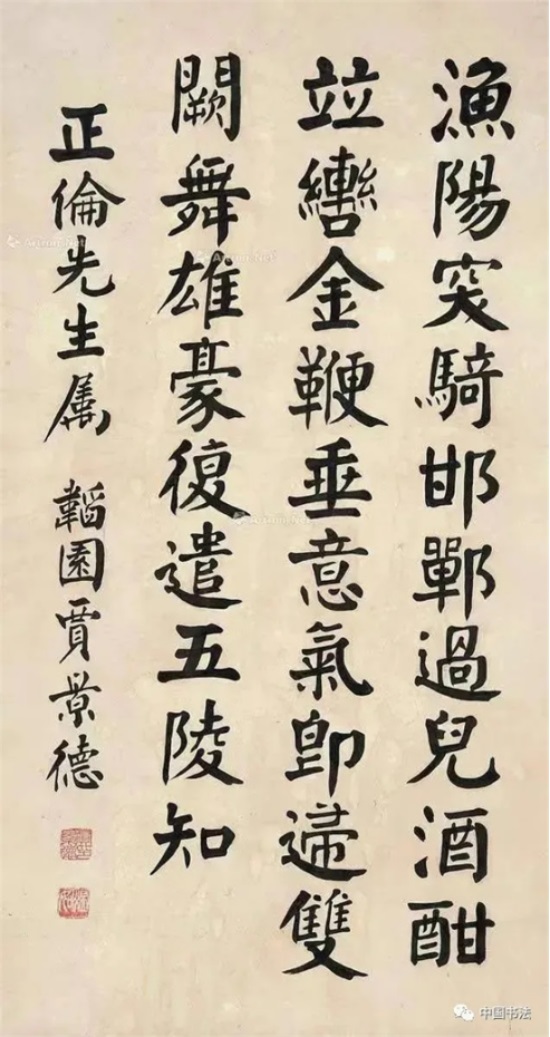 漁陽突騎邯鄲過兒酒酣
竝轡金鞭垂意氣即歸雙
闕舞雄豪復遣五陵知
正倫先生属 韜園賈景德
中国书法